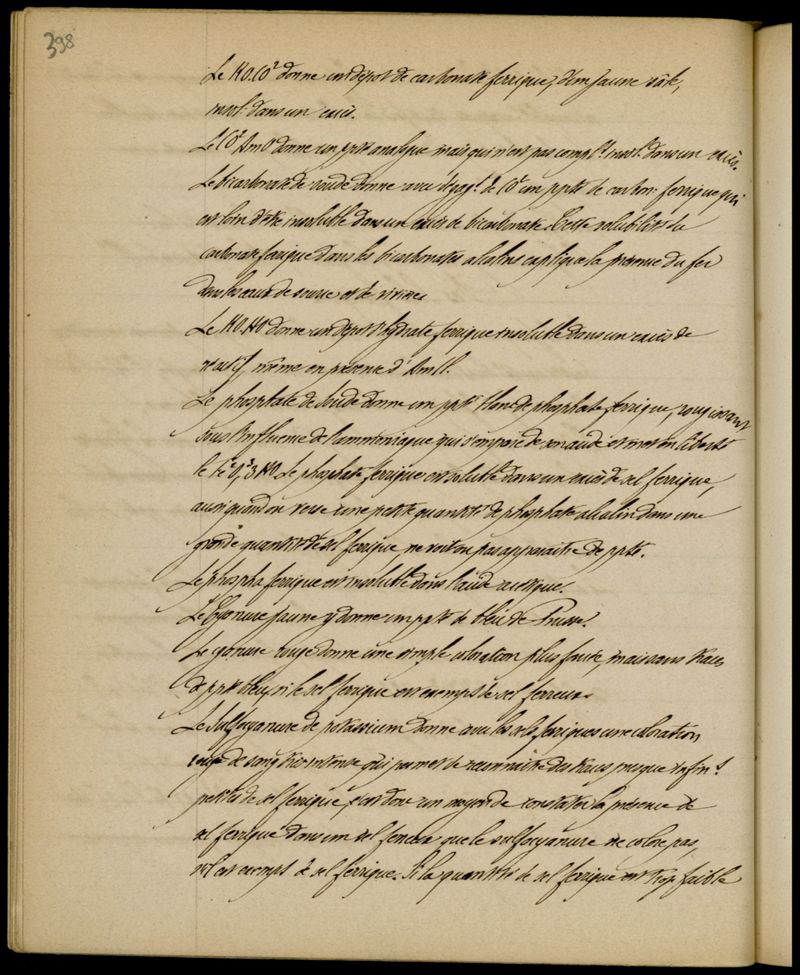 398
Le KO.CO² donne un dépot de carbonate ferrique, d'un jaune sale,
insol. dans un excès.
Le CO² AmO donne un ppté analogue mais qui n'est pas compl.t insol. dans un excès.
Le bicarbonate de soude donne avec dégag.t de CO² un ppté de carbon. ferrique qui
est loin d'être insoluble dans un excès de bicarbonate. Cette solubilité du
carbonate ferrique dans les bicarbonates alcalins explique la présence du fer
dans les eaux de source et de rivière
Le KO.HO donne un dépot d'hydrate ferrique insoluble dans un excès de
réactif même en présence d'
Le phosphate de soude donne un ppté blanc de phosphate ferrique, rougissant
sous l'influence de l'ammoniaque qui s'empare de son acide et met en liberté
le Fe²O³,3HO. Le phosphate ferrique est soluble dans un excès de sel ferrique,
aussi quand on verse une petite quantité de phosphate alcalin dans une
grande quantité de sel ferrique, ne voit on pas apparaitre de ppté.
Le phospha ferrique est insoluble dans l'acide acétique.
Le Cyanure jaune y donne un ppté de bleu de Prusse.
Le cyanure rouge donne une simple coloration plus foncée, mais sans traces
de ppté bleu, si le sel ferrique est exempt de sel ferreux.
Le sulfocyanure de potassium donne avec les sels ferriques une coloration
rouge de sang très intense qui permet de reconnaître des traces presque infin.t
petites de sel ferrique, c'est donc un moyen de constater la présence de
sel ferrique dans un sel ferreux que le sulfocyanure ne colore pas,
s'il est exempt de sel ferrique. Si la quantité de sel ferrique est trop faible